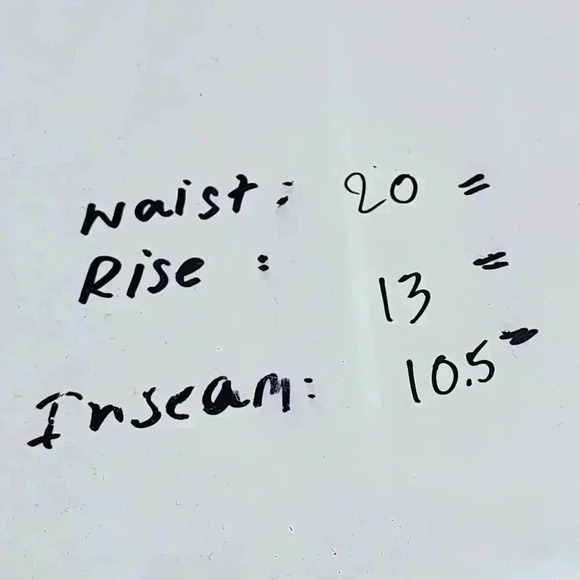 Waist: 20 =
Rise : 13 =
Inseam: 10.5 =